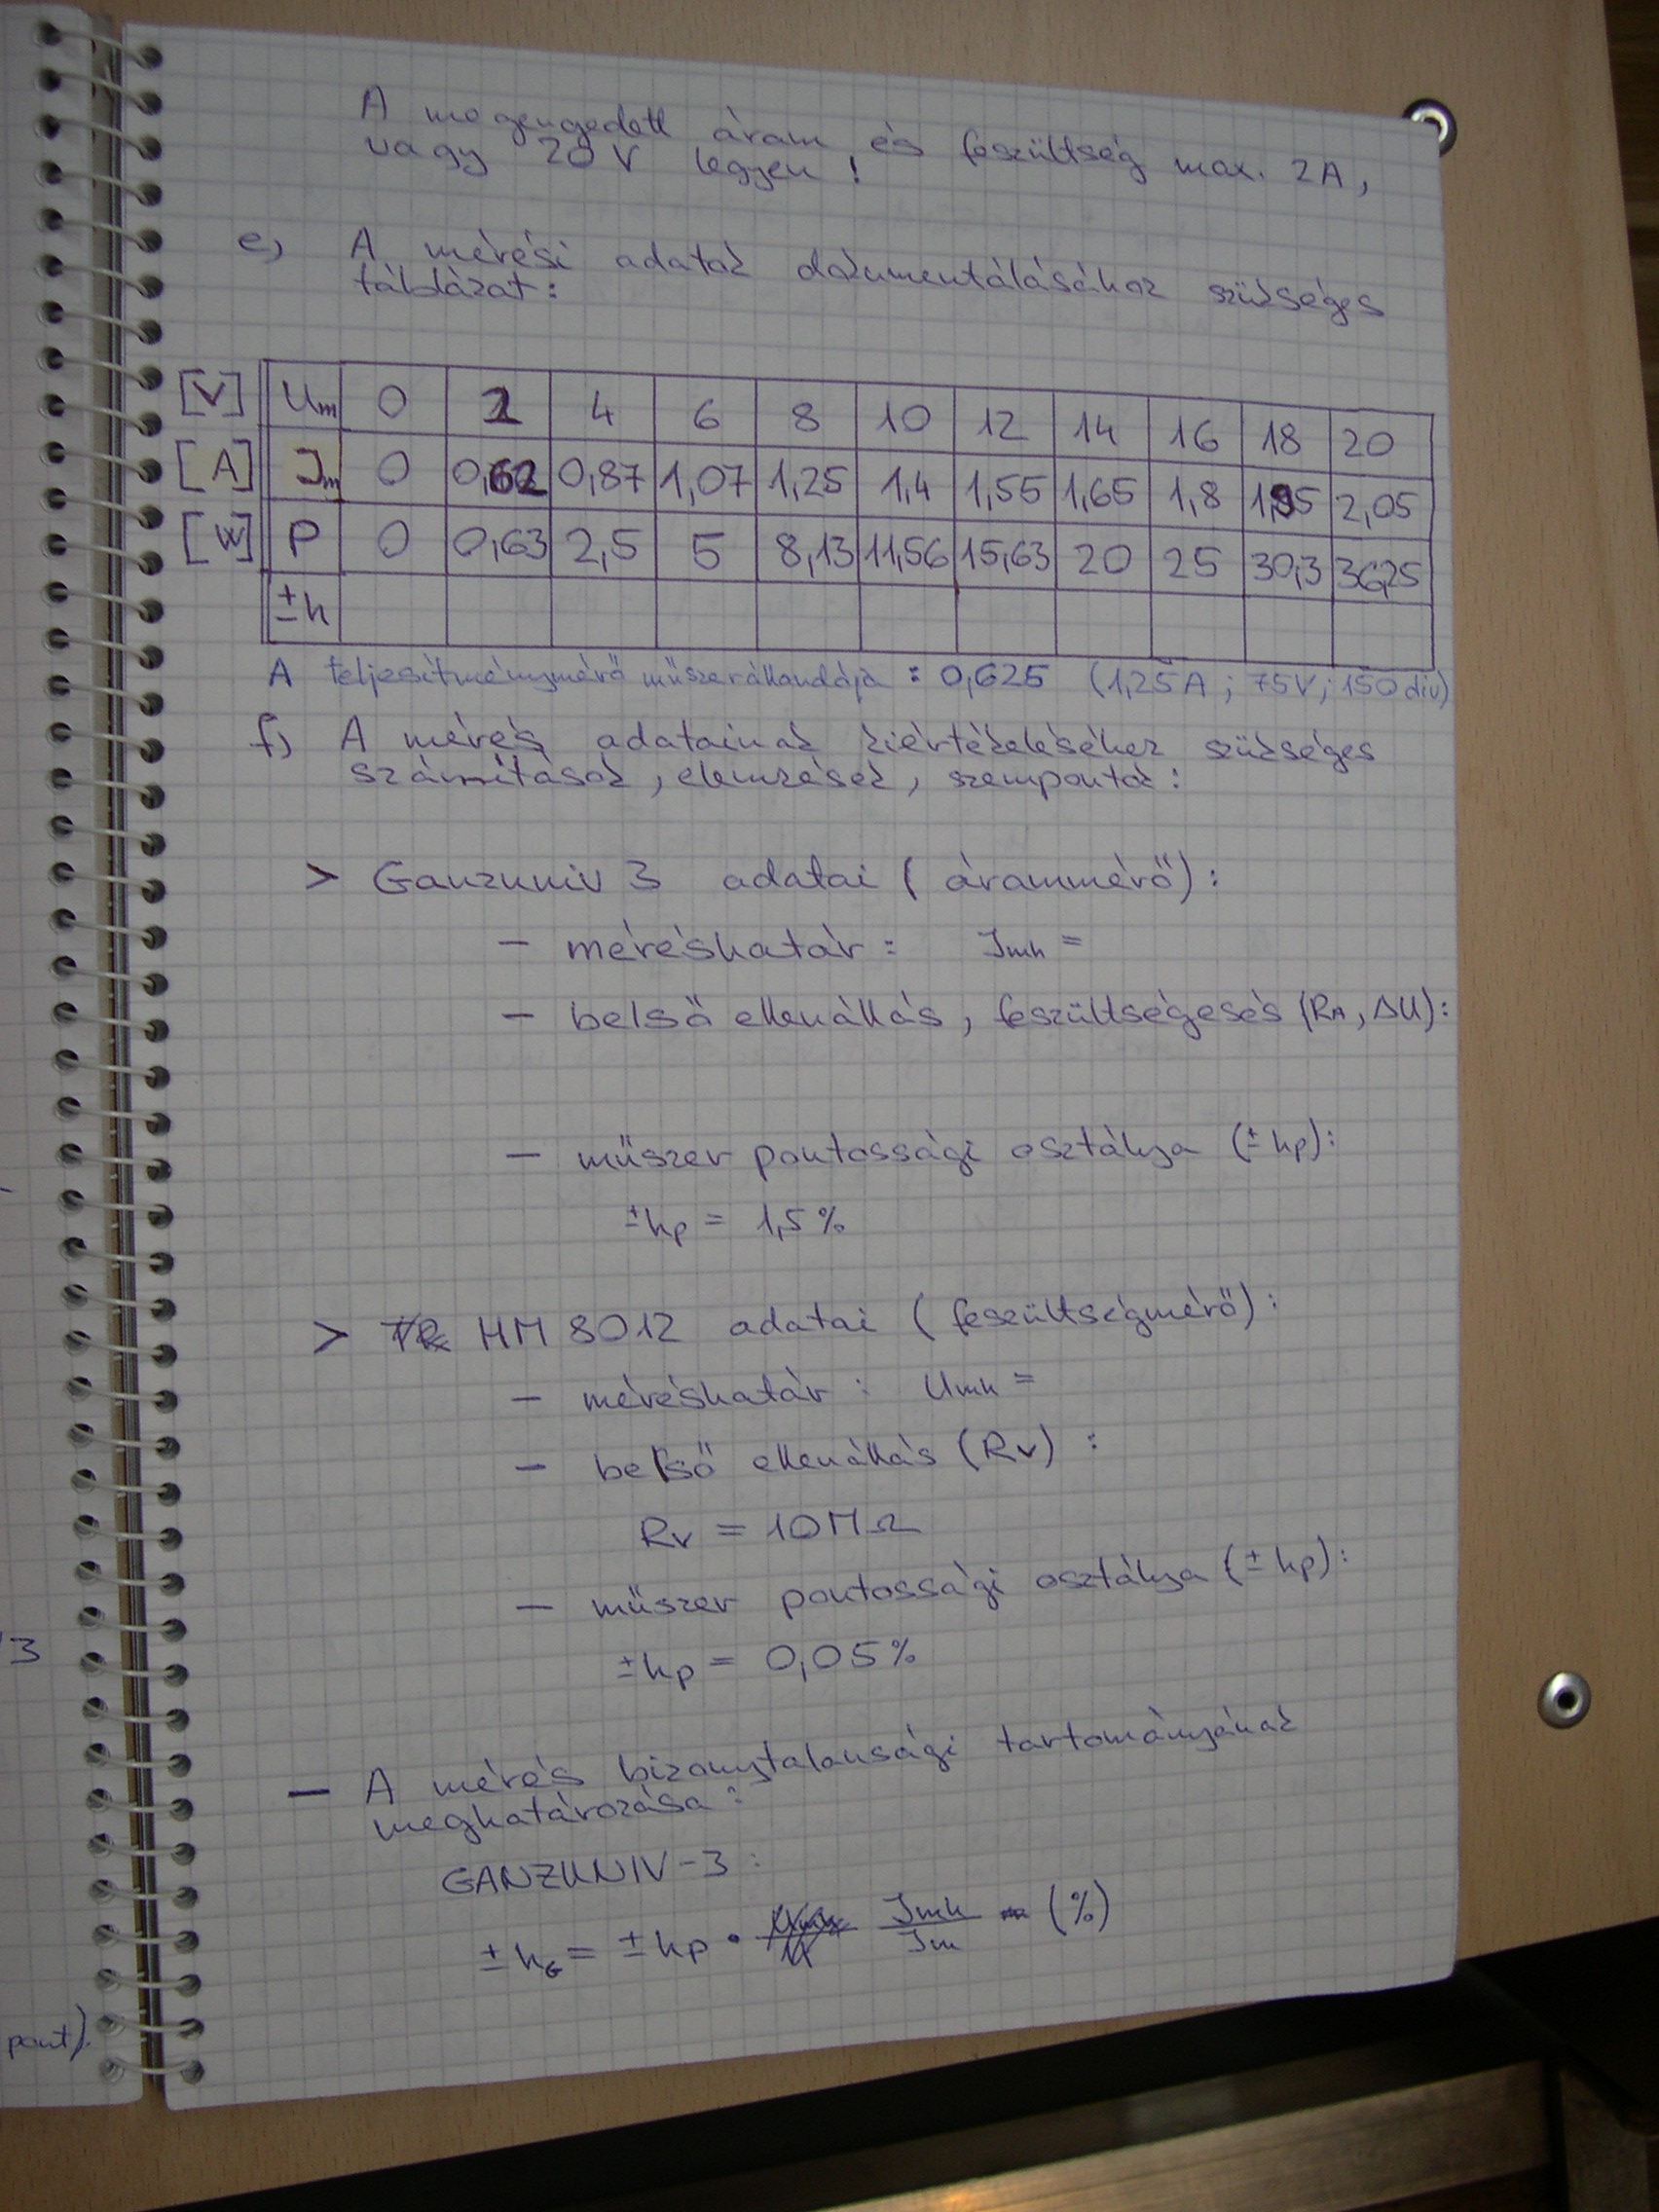 A megengedett áram és feszültség max. 2A,
vagy 20V legyen!
e) A mérési adatok dokumentálásához szükséges
táblázat:
[V] Um 0 2 4 6 8 10 12 14 16 18 20
[A] Im 0 0,62 0,87 1,07 1,25 1,4 1,55 1,65 1,8 1,95 2,05
[W] P 0 0,63 2,5 5 8,13 11,56 15,63 20 25 30,3 36,25
±h
A teljesítménymérő műszerállandója: 0,625 (1,25A; 75V; 150 div)
f) A mérés adatainak kiértékeléséhez szükséges
számítások, elemzések, szempontok:
> Ganzuniv 3 adatai (árammérő):
- méréshatár: Imh =
- belső ellenállás, feszültségesés (RA, ΔU):
- műszer pontossági osztálya (±hp):
±hp = 1,5%
> HM 8012 adatai (feszültségmérő):
- méréshatár: Umh =
- belső ellenállás (Rv):
Rv = 10MΩ
- műszer pontossági osztálya (±hp):
±hp = 0,05%
- A mérés bizonytalansági tartományának
meghatározása:
GANZUNIV-3:
±hG = ±hp · Imh / Im (%)
/3
pont).